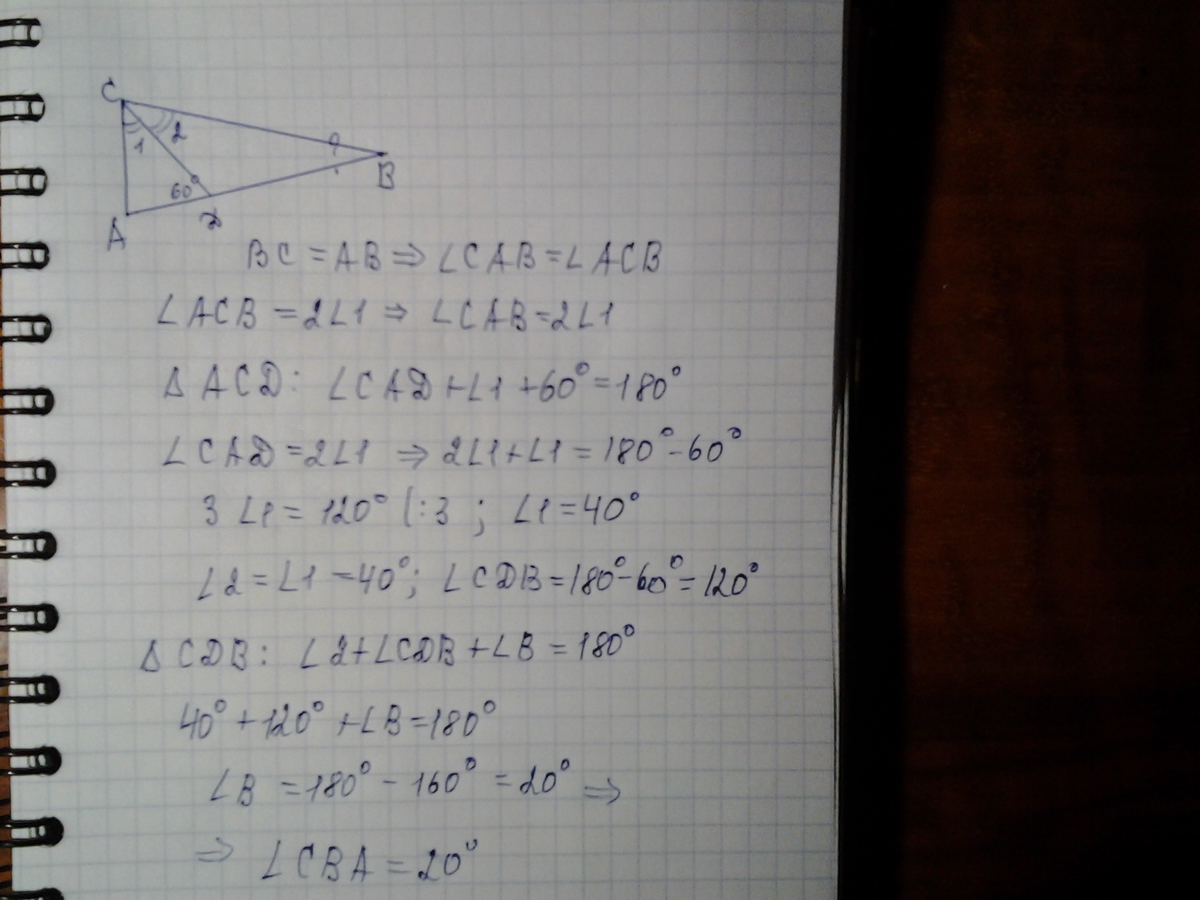 C
1 2
60°
B
A
D
BC = AB ⇒ ∠CAB = ∠ACB
∠ACB = 2∠1 ⇒ ∠CAB = 2∠1
Δ ACD: ∠CAD + ∠1 + 60° = 180°
∠CAD = 2∠1 ⇒ 2∠1 + ∠1 = 180° - 60°
3∠1 = 120° |:3 ; ∠1 = 40°
∠2 = ∠1 = 40°; ∠CDB = 180° - 60° = 120°
Δ CDB: ∠2 + ∠CDB + ∠B = 180°
40° + 120° + ∠B = 180°
∠B = 180° - 160° = 20° ⇒
⇒ ∠CBA = 20°